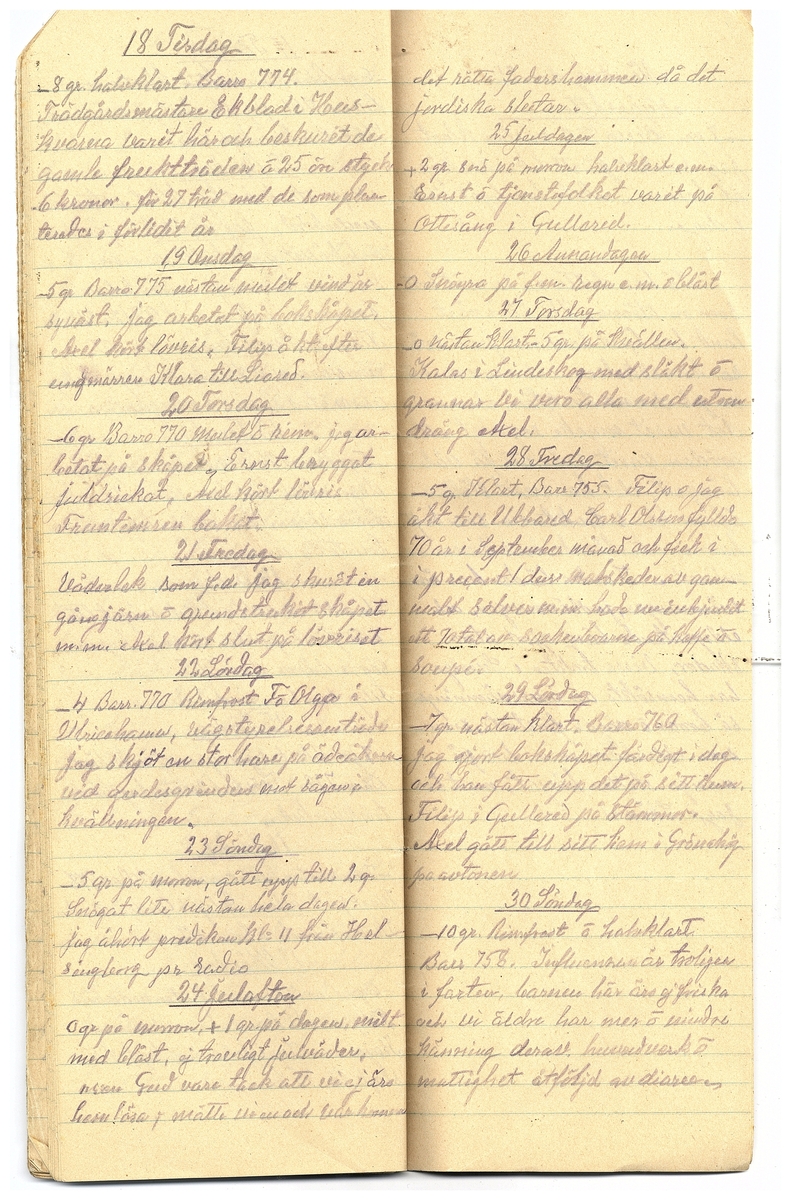 18 Tisdag
-8 gr. halvklart. Barro 774.
Trädgårdsmästare Ekblad i Hus-
kvarna varit här och beskurit de
gamle fruktträden á 25 öre styck
6 kronor. för 27 träd med de som plan-
terades i förlidit år
19 Onsdag
-5 gr Barro 775 nästan mulet vind öv.
sydväst. jag arbetat på bokskåpet.
Axel kört lövris. Filip åkt efter
ungmärren Klara till Liared.
20 Torsdag
-6 gr Barro 770 mulet ö rim. jag ar-
betat på skåpet, Ernst bryggat
juldrickat, Axel kört lövris
Fruntimren bakat.
21 Fredag
Väderlek som f.d. jag skurit in
gångjärn ö grundstrukit skåpet
m.m. Axel kört slut på lövriset
22 Lördag
-4 Barr. 770 Rimfrost Fö Olga i
Ulricehamn, vägstyrelsesamträde
jag skjöt en stor hare på
ved gärdesgrinden mot sågen i
kvällningen.
23 Söndag
-5 gr. på morron, gått upp till 2 gr
Snögat lite nästan hela dagen.
jag åhört predikan kl. 11 från Hel-
singborg pr Radio
24 Julafton
0 gr på morron, +1 gr på dagen, milt
med blåst, ej trevligt julväder,
men Gud vare tack att vi ej äro
hemlösa, måtte vi en och var komma
det rätta fadershemmet då det
jordiska slutar.
25 Juldagen
+2 gr snö på morron halvklart e.m.
Ernst ö tjänstefolket varit på
Ottesång i Gullered.
26 Annandagen
-0 Snögra på f.m. Regn e.m. ö blåst
27 Torsdag
-0 nästan klart. -5 gr. på kvällen.
Kalas i Lindeskog med släkt ö
grannar vi voro alla med utom
dräng Axel.
28 Fredag
-5 gr. Klart, Barr 755. Filip o jag
åkt till Ubbared Carl Olsson fyllde
70 år i September månad och fick i
i present 1 duss matskedar av gam-
malt silver
ett 70 tal av sockenborna på kaffe ö
soupé.
29 Lördag
-7 gr nästan klart. Barro 760
jag gjort bokskåpet färdigt i dag
och han fått upp det på sitt rum.
Filip i Gullered på stämmor.
Axel gått till sitt hem i Grönahög
på aftonen
30 Söndag
-10 gr. Rimfrost ö halvklart
Barr 758. Influensan är troligen
i farten, barnen här äro ej friska
och vi äldre har mer ö mindre
känning derav. huvudverk ö
mattighet åtföljd av diaree